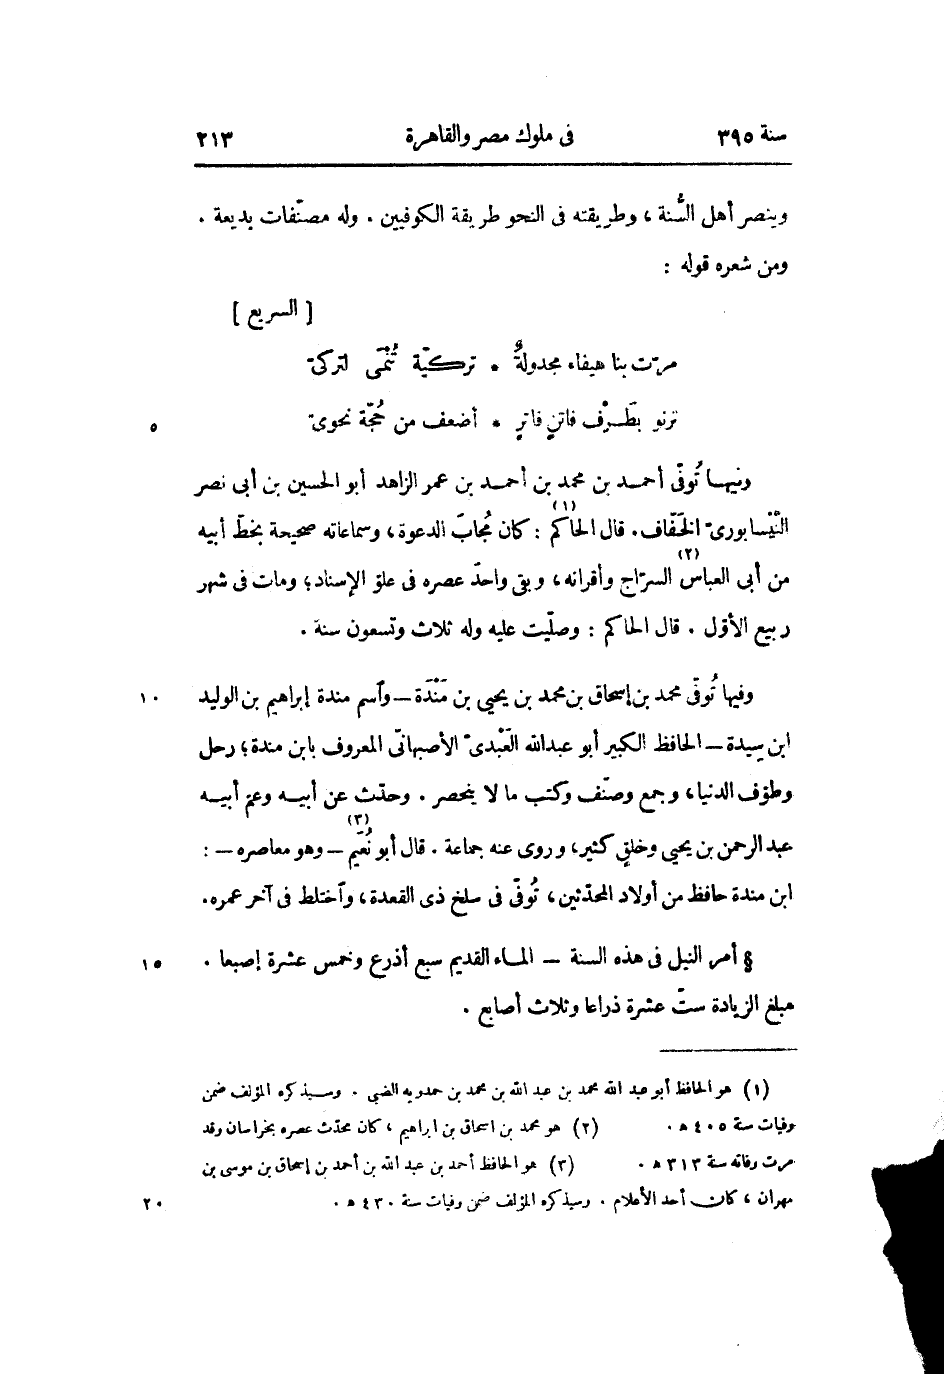 سنة ٣٩٥ فى ملوك مصر والقاهرة ٢١٣
وينصر أهل السُّنة ، وطريقته فى النحو طريقة الكوفيين . وله مصنّفات بديعة .
ومن شعره قوله :
[ السريع ]
مرّت بنا هيفاء مجدولةٌ * تركيّة تُنْمَى لتركىّ
ترنو بطَرْف فاتنٍ فاترٍ * أضعف من حُجّة نحوىّ ٥
وفيها تُوفّى أحمد بن محمد بن أحمد بن عمر الزاهد أبو الحسين بن أبى نصر
النَّيْسابورىّ الخَفّاف . قال الحاكم (١) : كان مُجابَ الدعوة ، وسماعاته صحيحة بخطّ أبيه
من أبى العباس (٢) السرّاج وأقرانه ، وبقى واحدَ عصره فى علوّ الإسناد ؛ ومات فى شهر
ربيع الأوّل . قال الحاكم : وصلّيت عليه وله ثلاث وتسعون سنة .
وفيها تُوفّى محمد بن إسحاق بن محمد بن يحيى بن مَنْدَة — وآسم مندة إبراهيم بن الوليد ١٠
ابن سيدة — الحافظ الكبير أبو عبدالله العَبْدىّ الأصبهانىّ المعروف بابن مندة ؛ رحل
وطوّف الدنيا ، وجمع وصنّف وكتب ما لا ينحصر . وحدّث عن أبيه وعمّ أبيه
عبد الرحمن بن يحيى وخلقٍ كثير ، وروى عنه جماعة . قال أبو نُعَيم (٣) — وهو معاصره — :
ابن مندة حافظ من أولاد المحدّثين ، تُوفّى فى سلخ ذى القعدة ، وآختلط فى آخر عمره .
§ أمر النيل فى هذه السنة — الماء القديم سبع أذرع وخمس عشرة إصبعا . ١٥
مبلغ الزيادة ستّ عشرة ذراعا وثلاث أصابع .
(١) هو الحافظ أبو عبد الله محمد بن عبد الله بن محمد بن حمدويه الضبى . وسيذكره المؤلف ضمن
وفيات سنة ٤٠٥ ه . (٢) هو محمد بن اسحاق بن ابراهيم ، كان محدّث عصره بخراسان وقد
مرت وفاته سنة ٣١٣ ه . (٣) هو الحافظ أحمد بن عبد الله بن أحمد بن إسحاق بن موسى بن
مهران ، كان أحد الأعلام . وسيذكره المؤلف ضمن وفيات سنة ٤٣٠ ه . ٢٠